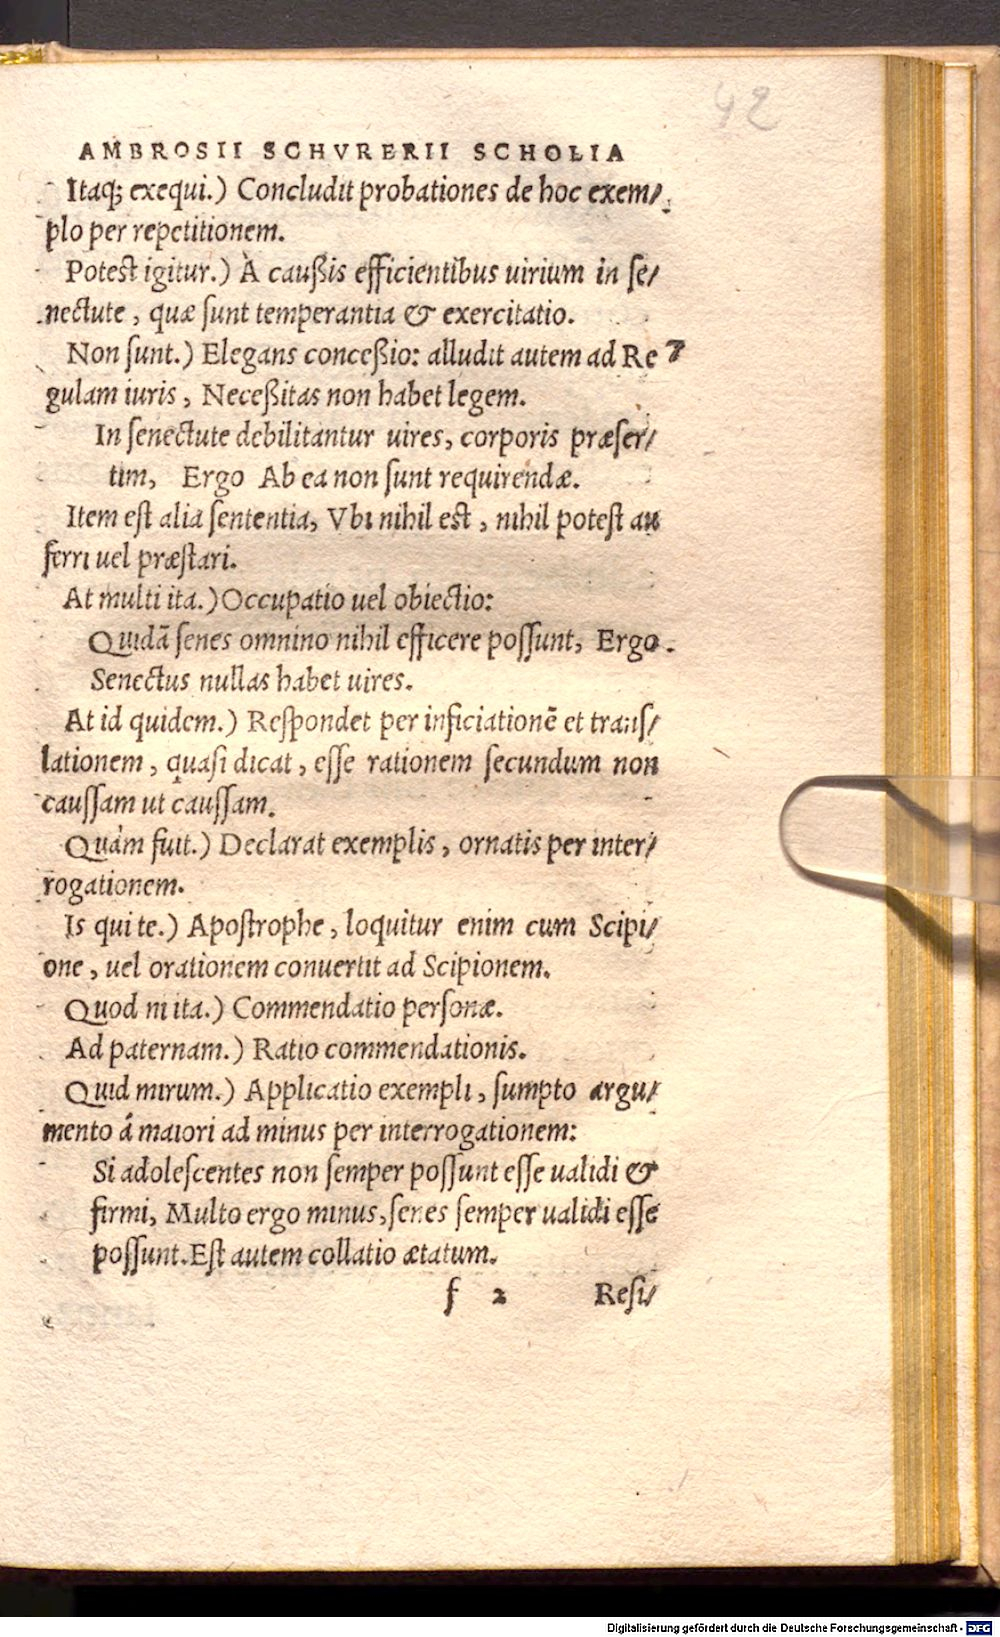 42
AMBROSII SCHVRERII SCHOLIA
Itaq; exequi.) Concludit probationes de hoc exem/
plo per repetitionem.
Potest igitur.) À caußis efficientibus uirium in ſe/
nectute, quæ ſunt temperantia & exercitatio.
Non ſunt.) Elegans conceßio: alludit autem ad Re 7
gulam iuris, Neceßitas non habet legem.
In ſenectute debilitantur uires, corporis præſer/
tim, Ergo Ab ea non ſunt requirendæ.
Item eſt alia ſententia, Vbi nihil est, nihil poteſt au
ferri uel præſtari.
At multi ita.) Occupatio uel obiectio:
Quidã ſenes omnino nihil efficere poſſunt, Ergo.
Senectus nullas habet uires.
At id quidem.) Reſpondet per inficiationē et tranſ/
lationem, quaſi dicat, eſſe rationem ſecundum non
cauſſam ut cauſſam.
Quàm fuit.) Declarat exemplis, ornatis per inter/
rogationem.
Is qui te.) Apoſtrophe, loquitur enim cum Scipi/
one, uel orationem conuertit ad Scipionem.
Quod ni ita.) Commendatio perſonæ.
Ad paternam.) Ratio commendationis.
Quid mirum.) Applicatio exempli, ſumpto argu/
mento á maiori ad minus per interrogationem:
Si adoleſcentes non ſemper poſſunt eſſe ualidi &
firmi, Multo ergo minus, ſenes ſemper ualidi eſſe
poſſunt. Eſt autem collatio ætatum.
f 2 Reſi/
Digitalisierung gefördert durch die Deutsche Forschungsgemeinschaft - DFG